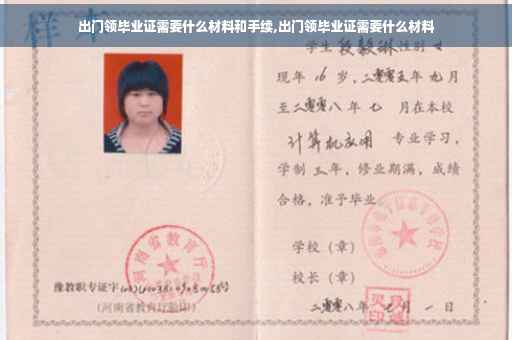 出门领毕业证需要什么材料和手续,出门领毕业证需要什么材料
样本
学生段毅琳性别女
现年16岁，二零零五年九月
至二零零八年七月在本校
计算机应用 专业学习，
学制三年，修业期满，成绩
合格，准予毕业
学校（章）
校长（章）
二零零八年七月一日
河南省教育厅
豫教职专证字
(河南省教育厅验印)